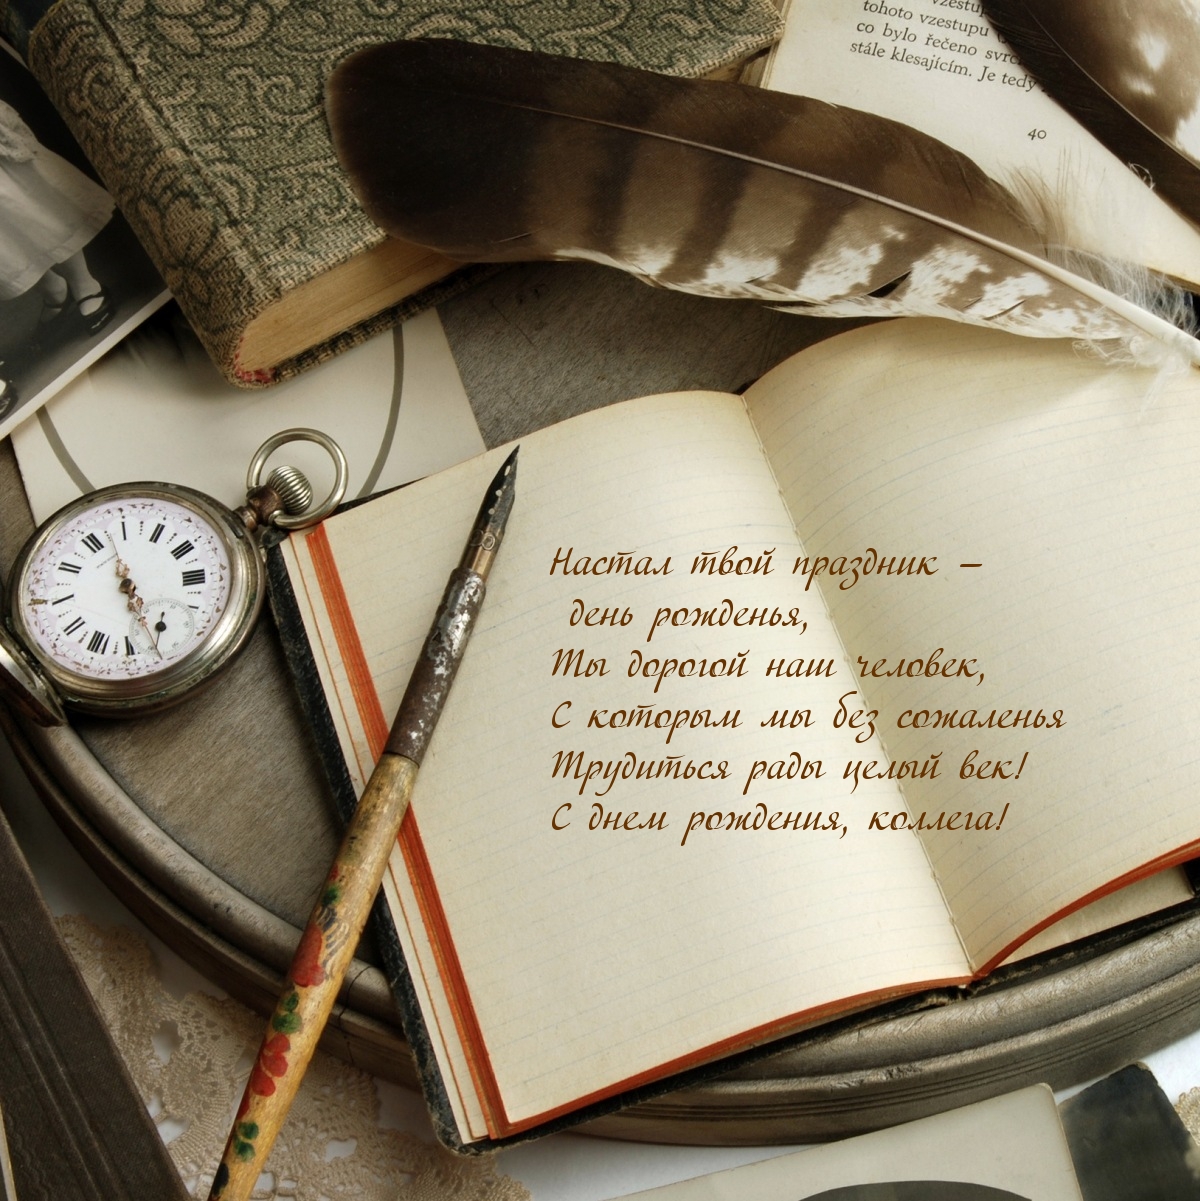 vzestupu
tohoto vzestupu
co bylo řečeno
stále klesajícím. Je tedy
40
Настал твой праздник –
день рожденья,
Ты дорогой наш человек,
С которым мы без сожаленья
Трудиться рады целый век!
С днем рождения, коллега!